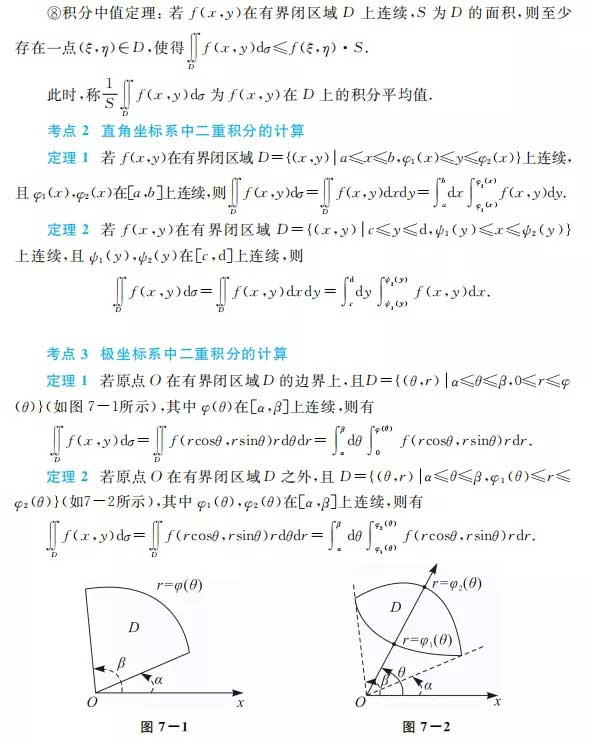 ⑧积分中值定理:若 f(x,y)在有界闭区域 D 上连续,S 为 D 的面积,则至少
存在一点(ξ,η)∈D,使得∬_D f(x,y)dσ≤f(ξ,η)·S.
此时,称 1/S ∬_D f(x,y)dσ 为 f(x,y)在 D 上的积分平均值.
考点 2 直角坐标系中二重积分的计算
定理 1 若 f(x,y)在有界闭区域 D={(x,y)|a≤x≤b,φ₁(x)≤y≤φ₂(x)}上连续,
且 φ₁(x),φ₂(x)在[a,b]上连续,则∬_D f(x,y)dσ=∬_D f(x,y)dxdy=∫_a^b dx ∫_{φ₁(x)}^{φ₂(x)} f(x,y)dy.
定理 2 若 f(x,y)在有界闭区域 D={(x,y)|c≤y≤d,ψ₁(y)≤x≤ψ₂(y)}
上连续,且 ψ₁(y),ψ₂(y)在[c,d]上连续,则
∬_D f(x,y)dσ=∬_D f(x,y)dxdy=∫_c^d dy ∫_{ψ₁(y)}^{ψ₂(y)} f(x,y)dx.
考点 3 极坐标系中二重积分的计算
定理 1 若原点 O 在有界闭区域 D 的边界上,且D={(θ,r)|α≤θ≤β,0≤r≤φ
(θ)}(如图 7-1所示),其中 φ(θ)在[α,β]上连续,则有
∬_D f(x,y)dσ=∬_D f(rcosθ,rsinθ)rdθdr=∫_α^β dθ ∫_0^{φ(θ)} f(rcosθ,rsinθ)rdr.
定理 2 若原点 O 在有界闭区域 D 之外,且 D={(θ,r)|α≤θ≤β,φ₁(θ)≤r≤
φ₂(θ)}(如7-2所示),其中 φ₁(θ),φ₂(θ)在[α,β]上连续,则有
∬_D f(x,y)dσ=∬_D f(rcosθ,rsinθ)rdθdr=∫_α^β dθ ∫_{φ₁(θ)}^{φ₂(θ)} f(rcosθ,rsinθ)rdr.
r=φ(θ)
D
β
α
O
x
图 7-1
r=φ₂(θ)
D
r=φ₁(θ)
β
θ
α
O
x
图 7-2